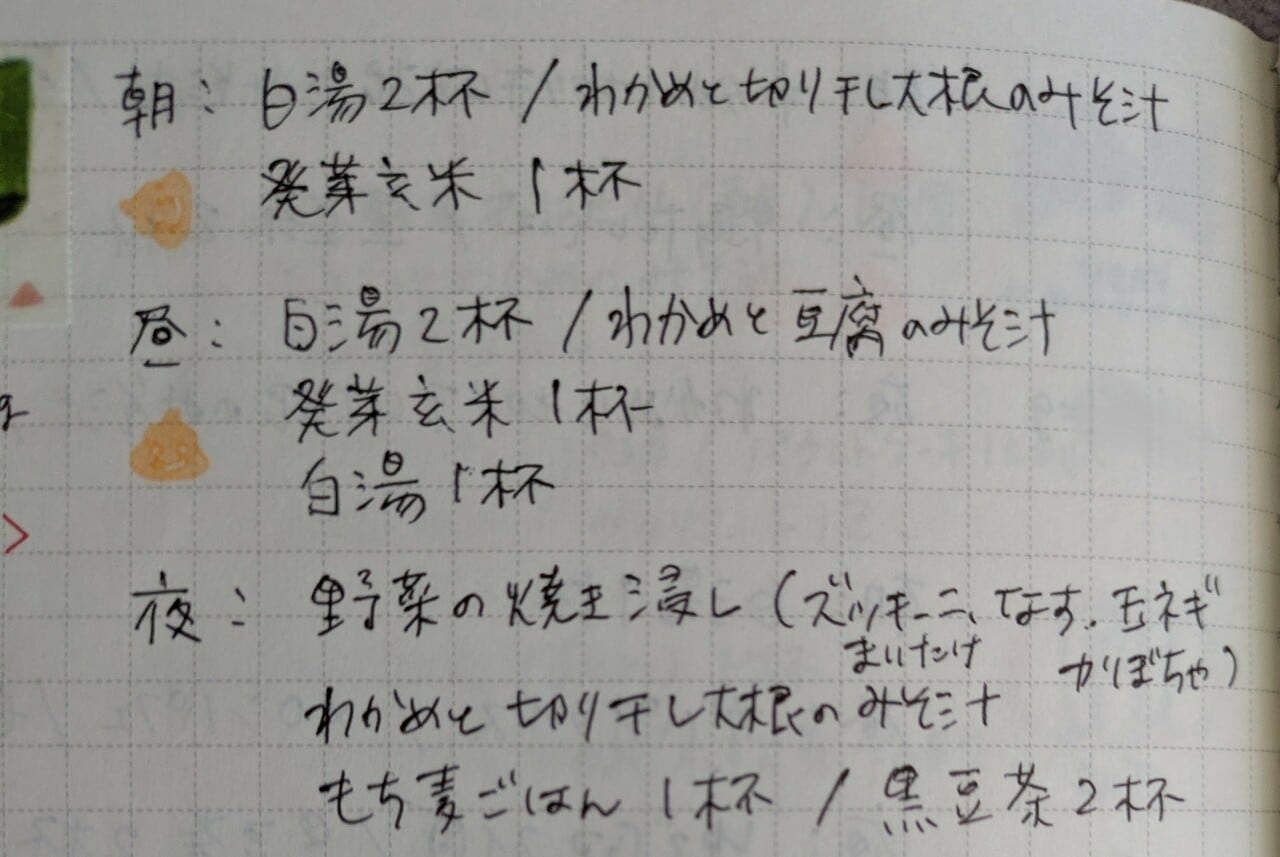 朝: 白湯2杯 / わかめと切り干し大根のみそ汁
発芽玄米 1杯
昼: 白湯2杯 / わかめと豆腐のみそ汁
発芽玄米 1杯
白湯 1杯
夜: 野菜の焼き浸し (ズッキーニ、なす、玉ネギ
まいたけ かぼちゃ)
わかめと切り干し大根のみそ汁
もち麦ごはん 1杯 / 黒豆茶2杯